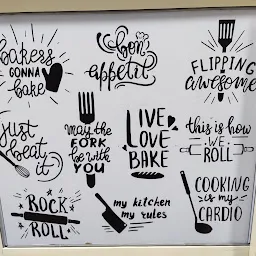 bakers
GONNA
bake
bon
appetit
FLIPPING
awesome
Just
beat
it
may the
FORK
be with
YOU
LIVE
LOVE
BAKE
this is how
WE
ROLL
ROCK
ROLL
my kitchen
my rules
COOKING
is my
CARDIO